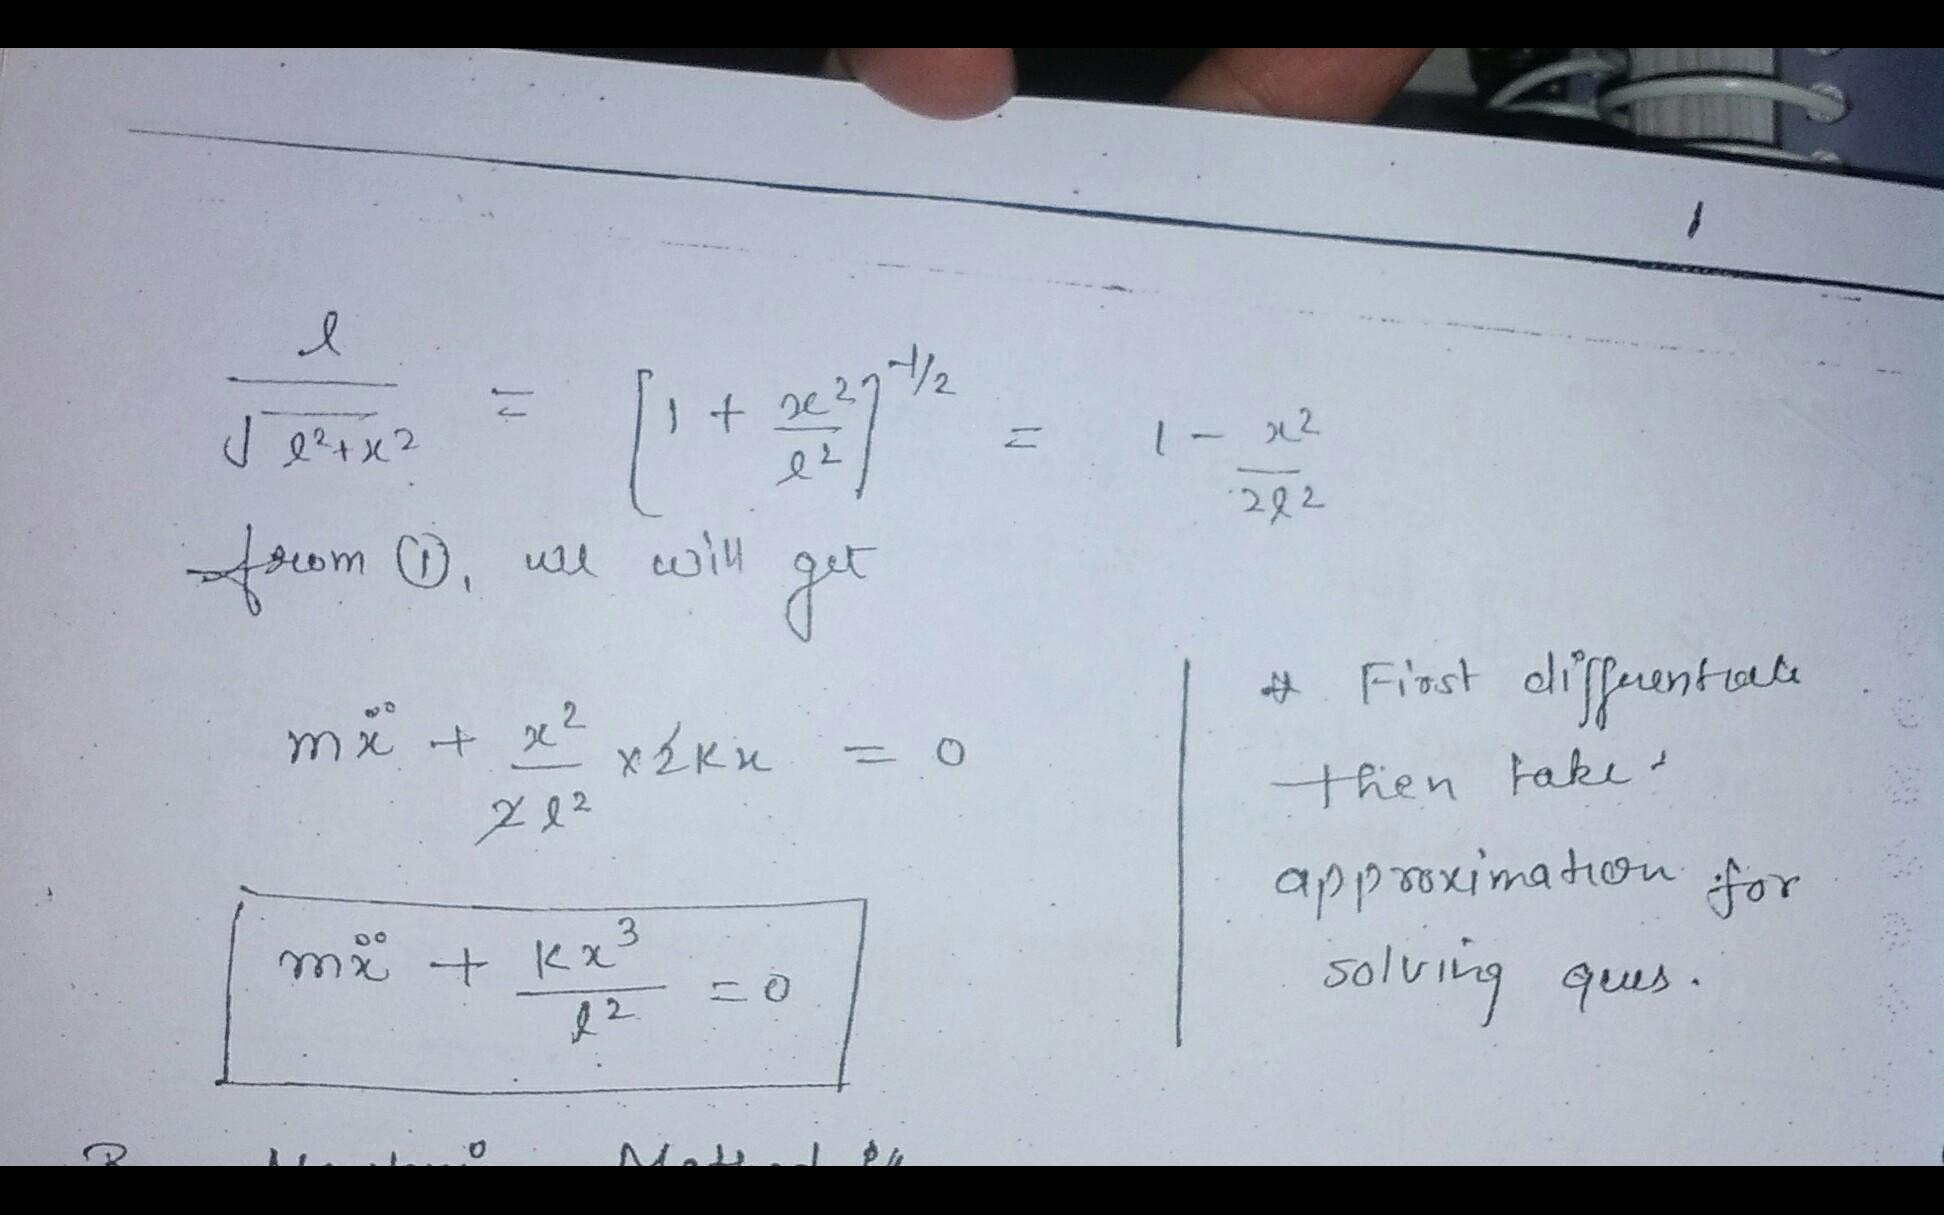 l / √(l²+x²) = [1 + x²/l²]^(-1/2) = 1 - x²/2l²
from ①, we will get
mẍ + x²/2l² × 2Kx = 0
mẍ + Kx³/l² = 0
* First differentiate
then take
approximation for
solving ques.